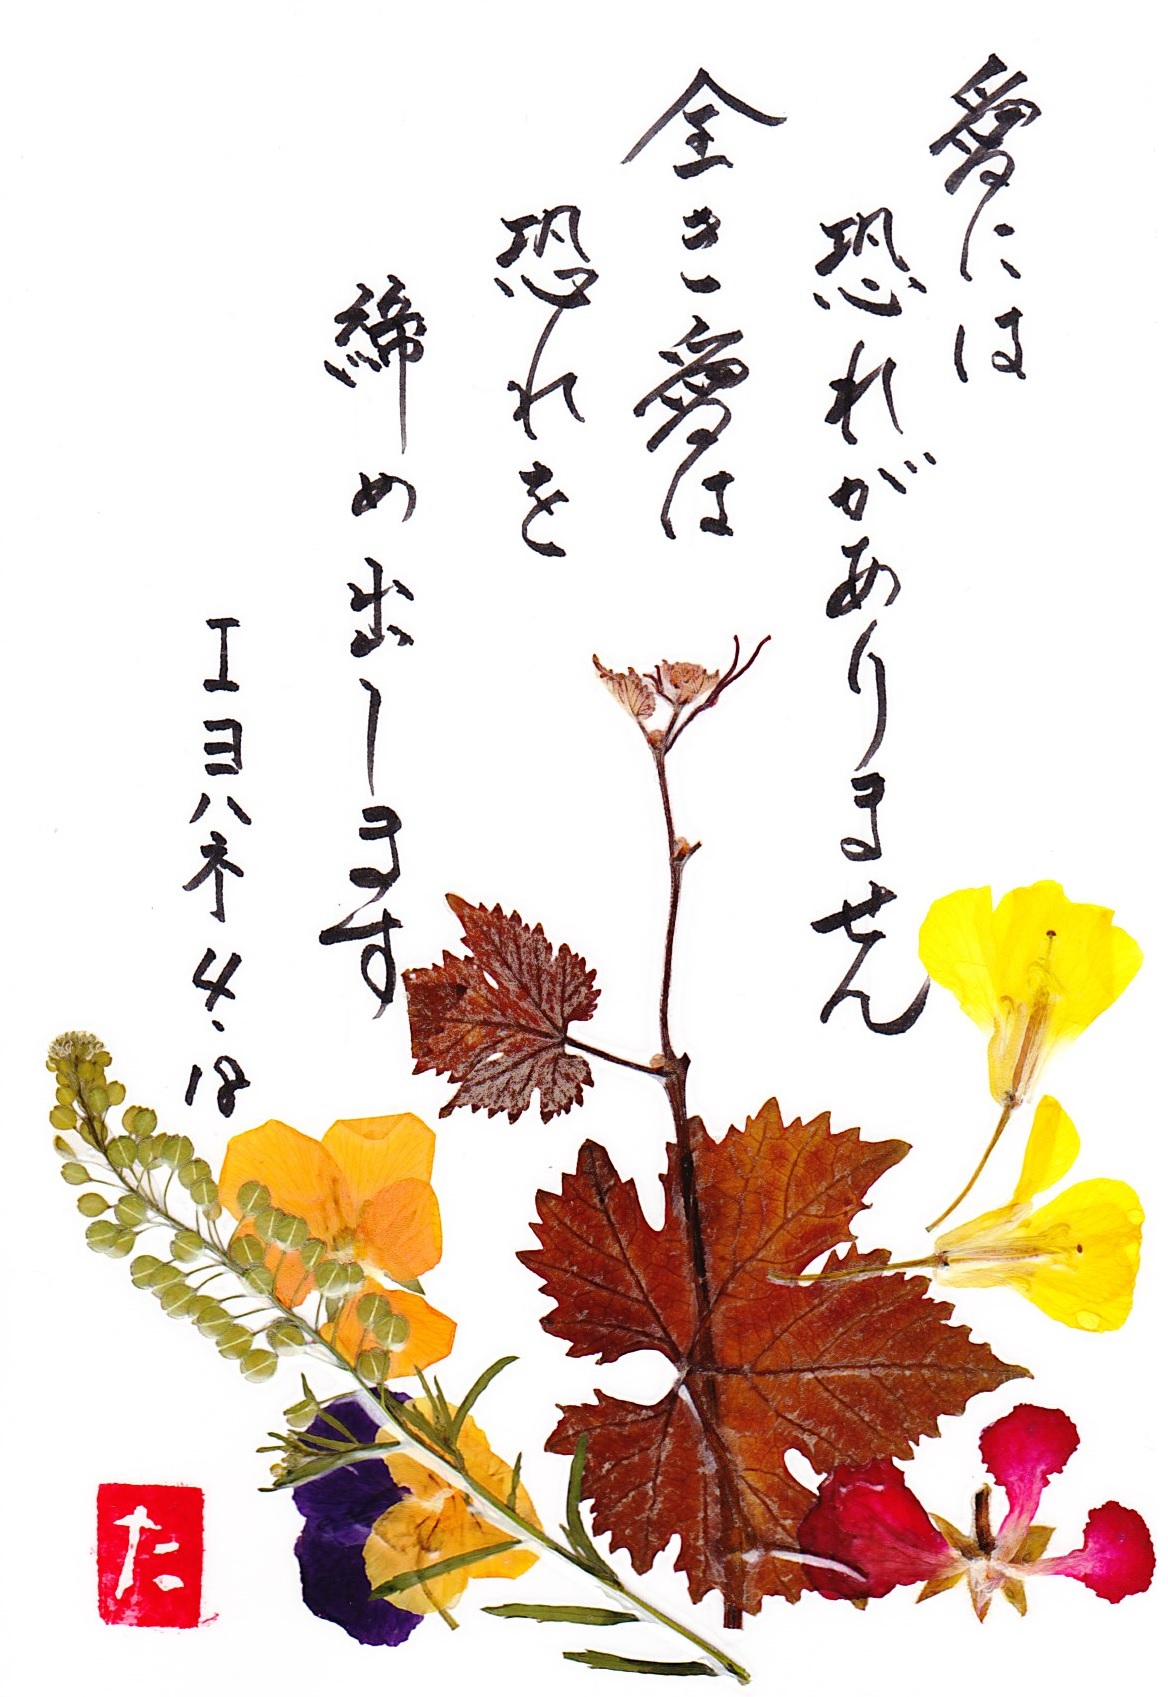 愛には
恐れがありません
全き愛は
恐れを
締め出します
Ⅰヨハネ4.18
た